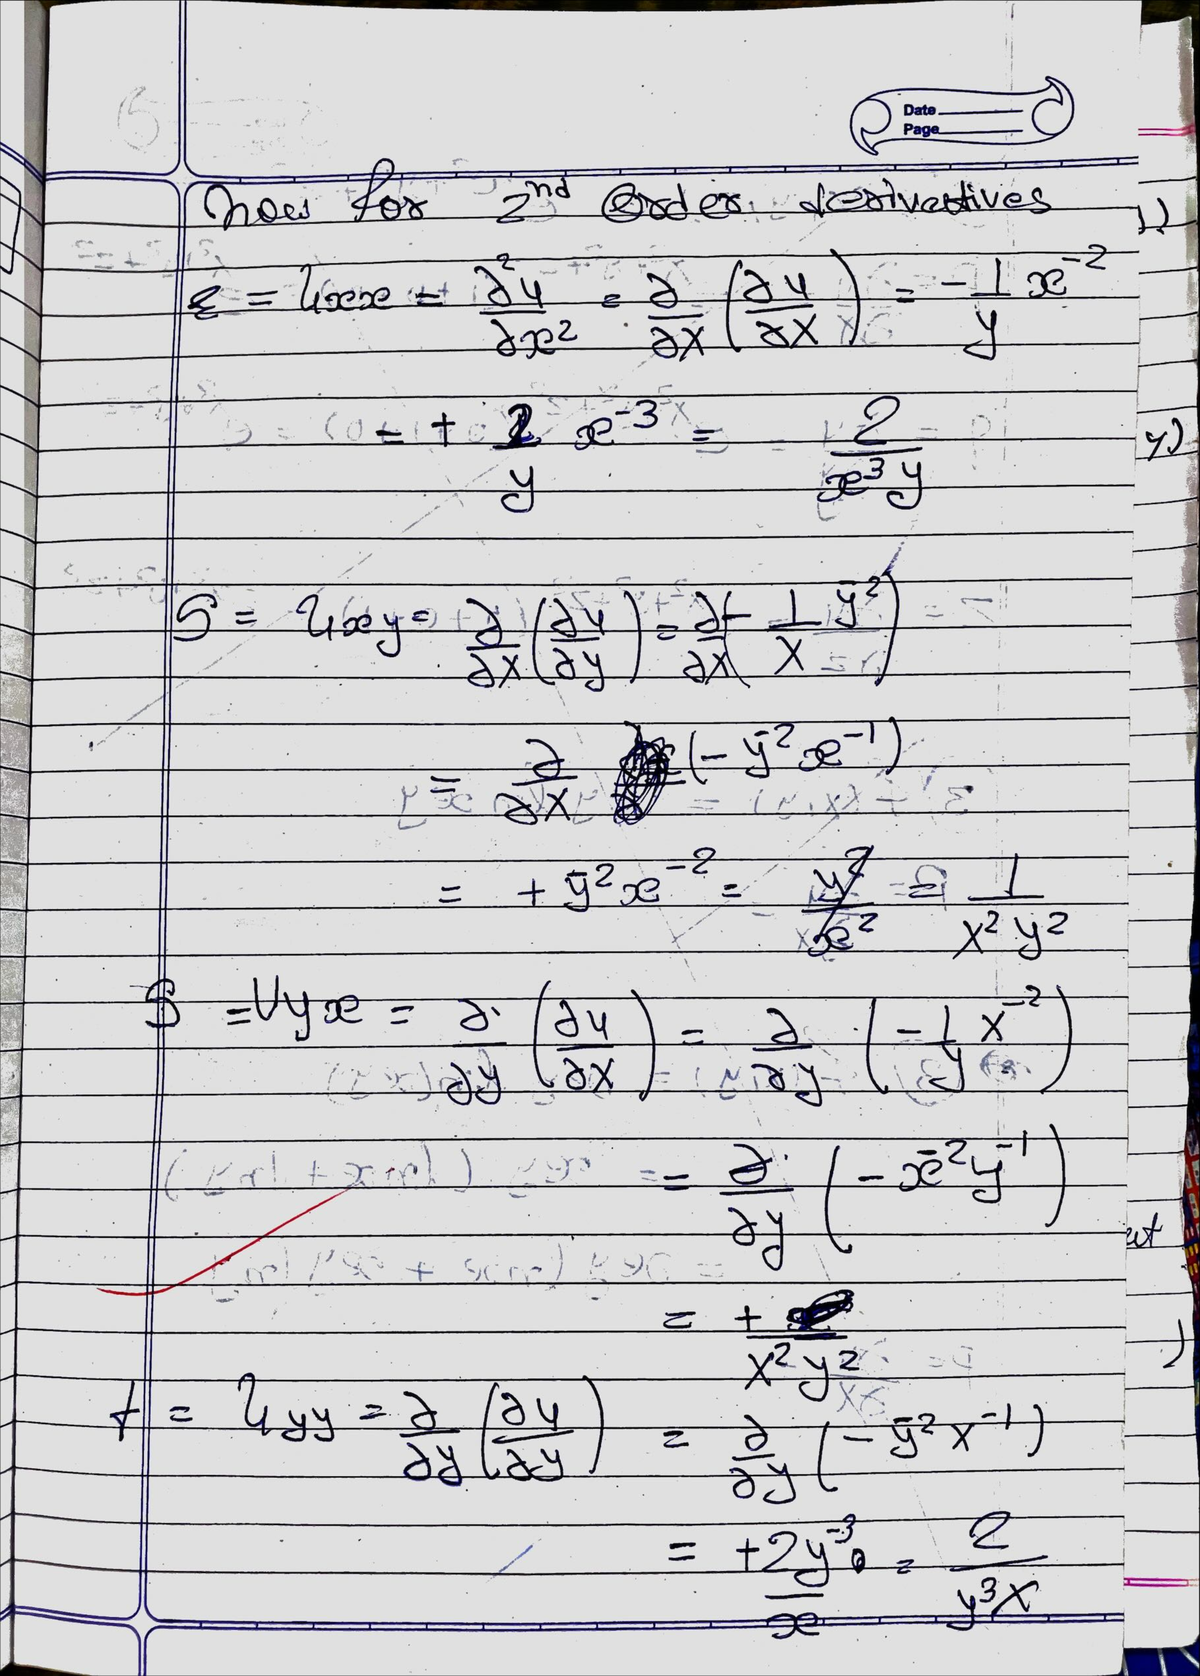 Date
Page
Now for 2nd Order derivatives
r = uxx = ∂²u/∂x² = ∂/∂x (∂u/∂x) = -1/y x⁻²
= + 2/y x⁻³ = 2/x³y
S = uxy = ∂/∂x (∂u/∂y) = ∂/∂x (- 1/x y⁻²)
= ∂/∂x (- y⁻² x⁻¹)
= + y⁻² x⁻² = y²/x² = 1/x² y²
S = Uyx = ∂/∂y (∂u/∂x) = ∂/∂y (-1/y x⁻²)
= ∂/∂y (- x⁻² y⁻¹)
= +/x² y²
t = uyy = ∂/∂y (∂u/∂y) = ∂/∂y (- y⁻² x⁻¹)
= +2y⁻³/x = 2/y³x